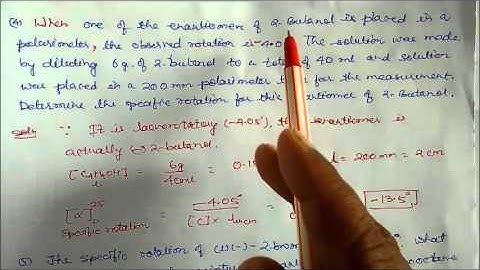 (4) When one of the enantiomer of 2-Butanol is placed in a
polarimeter, the observed rotation is -4.05 The solution was made
by diluting 6g. of 2-butanol to a total of 40 ml and solution
was placed in a 200 mm polarimeter for the measurement.
Determine the specific rotation for this enantiomer of 2-Butanol.
Soln: ∵ It is laevorotatory (-4.05°), the enantiomer is
actually (-) 2-butanol.
[C4H9OH] = 6g/40ml = 0.15 l = 200mm = 2 cm
[α]25 D = -4.05°/[C] × l = -13.5°
specific rotation
(5) The specific rotation of (-)-2-brom what